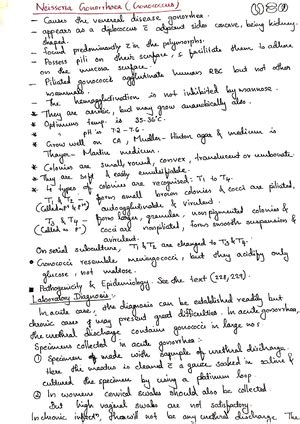 Neisseria Gonorrhoea (Gonococcus)
- Causes the venereal disease gonorrhea.
- appears as a diplococcus c̄ adjacent sides concave, being kidney
shaped
- found predominantly c̄ in the polymorphs.
- Possess pili on their surface, c̄ facilitate them to adhere
on the mucosa surface.
- Piliated gonococci agglutinate human RBC but not other
mammals.
- The hemagglutination is not inhibited by mannose.
* They are aerobic, but may grow anaerobically also.
* Optimum temp is 35-36°C.
" pH is 7.2 - 7.6.
* Grow well on CA, Mueller-Hinton agar & medium is
Thayer-Martin medium.
* Colonies are small, round, convex, translucent or umbonate
* They are soft & easily emulsifiable.
* 4 types of colonies are recognised: T1 to T4.
T1 & T2 - form small brown colonies & cocci are piliated,
autoagglutinable & virulent.
T3 & T4 - form larger, granular, non pigmented colonies &
cocci are nonpiliated, forms smooth suspensions &
avirulent.
On serial subculture, T1 & T2 are changed to T3 & T4.
• Gonococci resemble meningococci, but they acidify only
glucose, not maltose.
■ Pathogenicity & Epidemiology: See the text (228, 229).
Laboratory Diagnosis:-
In acute case, the diagnosis can be established readily but
chronic cases may present great difficulties. In acute gonorrhea,
the urethral discharge contains gonococci in large nos.
Specimens collected in acute gonorrhea:-
① Specimen of made with sample of urethral discharge.
Here the meatus is cleaned c̄ a gauze soaked in saline &
cultured the specimen by using a platinum loop
② In women cervical swabs should also be collected
But high vaginal swabs are not satisfactory.
In chronic infectn, there will not be any urethral discharge. The